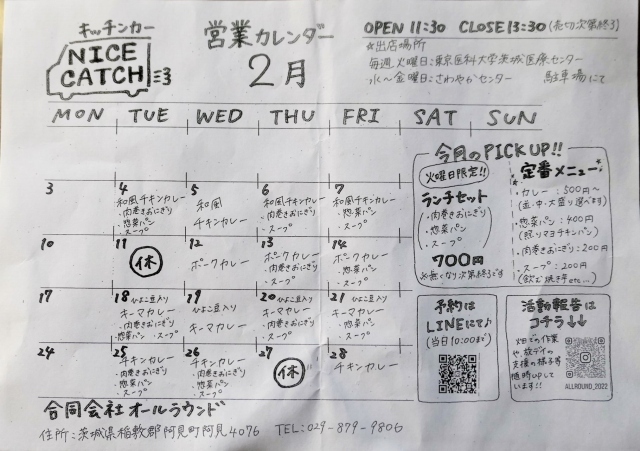 キッチンカー
NICE
CATCH
営業カレンダー
2月
OPEN 11:30 CLOSE 13:30(売切次第終了)
※出店場所
毎週 火曜日:東京医科大学茨城医療センター
水〜金曜日:さわやかセンター 駐車場にて
MON TUE WED THU FRI SAT SUN
3 4 5 6 7
和風チキンカレー
・肉巻きおにぎり
・惣菜パン
・スープ
和風
チキンカレー
和風チキンカレー
・肉巻きおにぎり
・スープ
和風チキンカレー
・惣菜パン
・スープ
10 11 12 13 14
休
ポークカレー
ポークカレー
・肉巻きおにぎり
・スープ
ポークカレー
・惣菜パン
・スープ
17 18 19 20 21
ひよこ豆入り
キーマカレー
・肉巻きおにぎり
・惣菜パン ・スープ
ひよこ豆入り
キーマカレー
ひよこ豆入り
キーマカレー
・肉巻きおにぎり
・スープ
ひよこ豆入り
キーマカレー
・惣菜パン
・スープ
24 25 26 27 28
チキンカレー
・肉巻きおにぎり
・惣菜パン
・スープ
チキンカレー
・肉巻きおにぎり
・惣菜パン
・スープ
休
チキンカレー
今月のPICK UP!!
火曜日限定!!
ランチセット
・肉巻きおにぎり
・惣菜パン
・スープ
700円
※無くなり次第終了です
定番メニュー
・カレー:500円〜
(並・中・大盛り選べます)
・惣菜パン:400円
(照りマヨチキンパン)
・肉巻きおにぎり:200円
・スープ:200円
予約は
LINEにて♪
(当日10:00まで)
活動報告は
コチラ↓↓
畑での作業
や、放デイの
支援の様子等
随時upして
います!!
ALLROUND_2022
合同会社オールラウンド
住所:茨城県稲敷郡阿見町阿見4076 TEL:029-879-9806